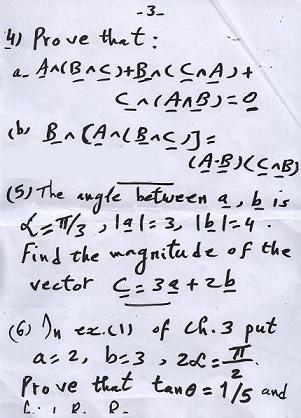 -3-
4) Prove that:
a- A∧(B∧C)+B∧(C∧A)+
C∧(A∧B)=0
(b) B∧[A∧(B∧C)]=
(A-B)(C∧B)
(5) The angle between a, b is
α=π/3, |a|=3, |b|=4.
Find the magnitude of the
vector C=3a+2b
(6) In ex.(1) of ch.3 put
a=2, b=3, 2α=π/2.
Prove that tanθ=1/5 and